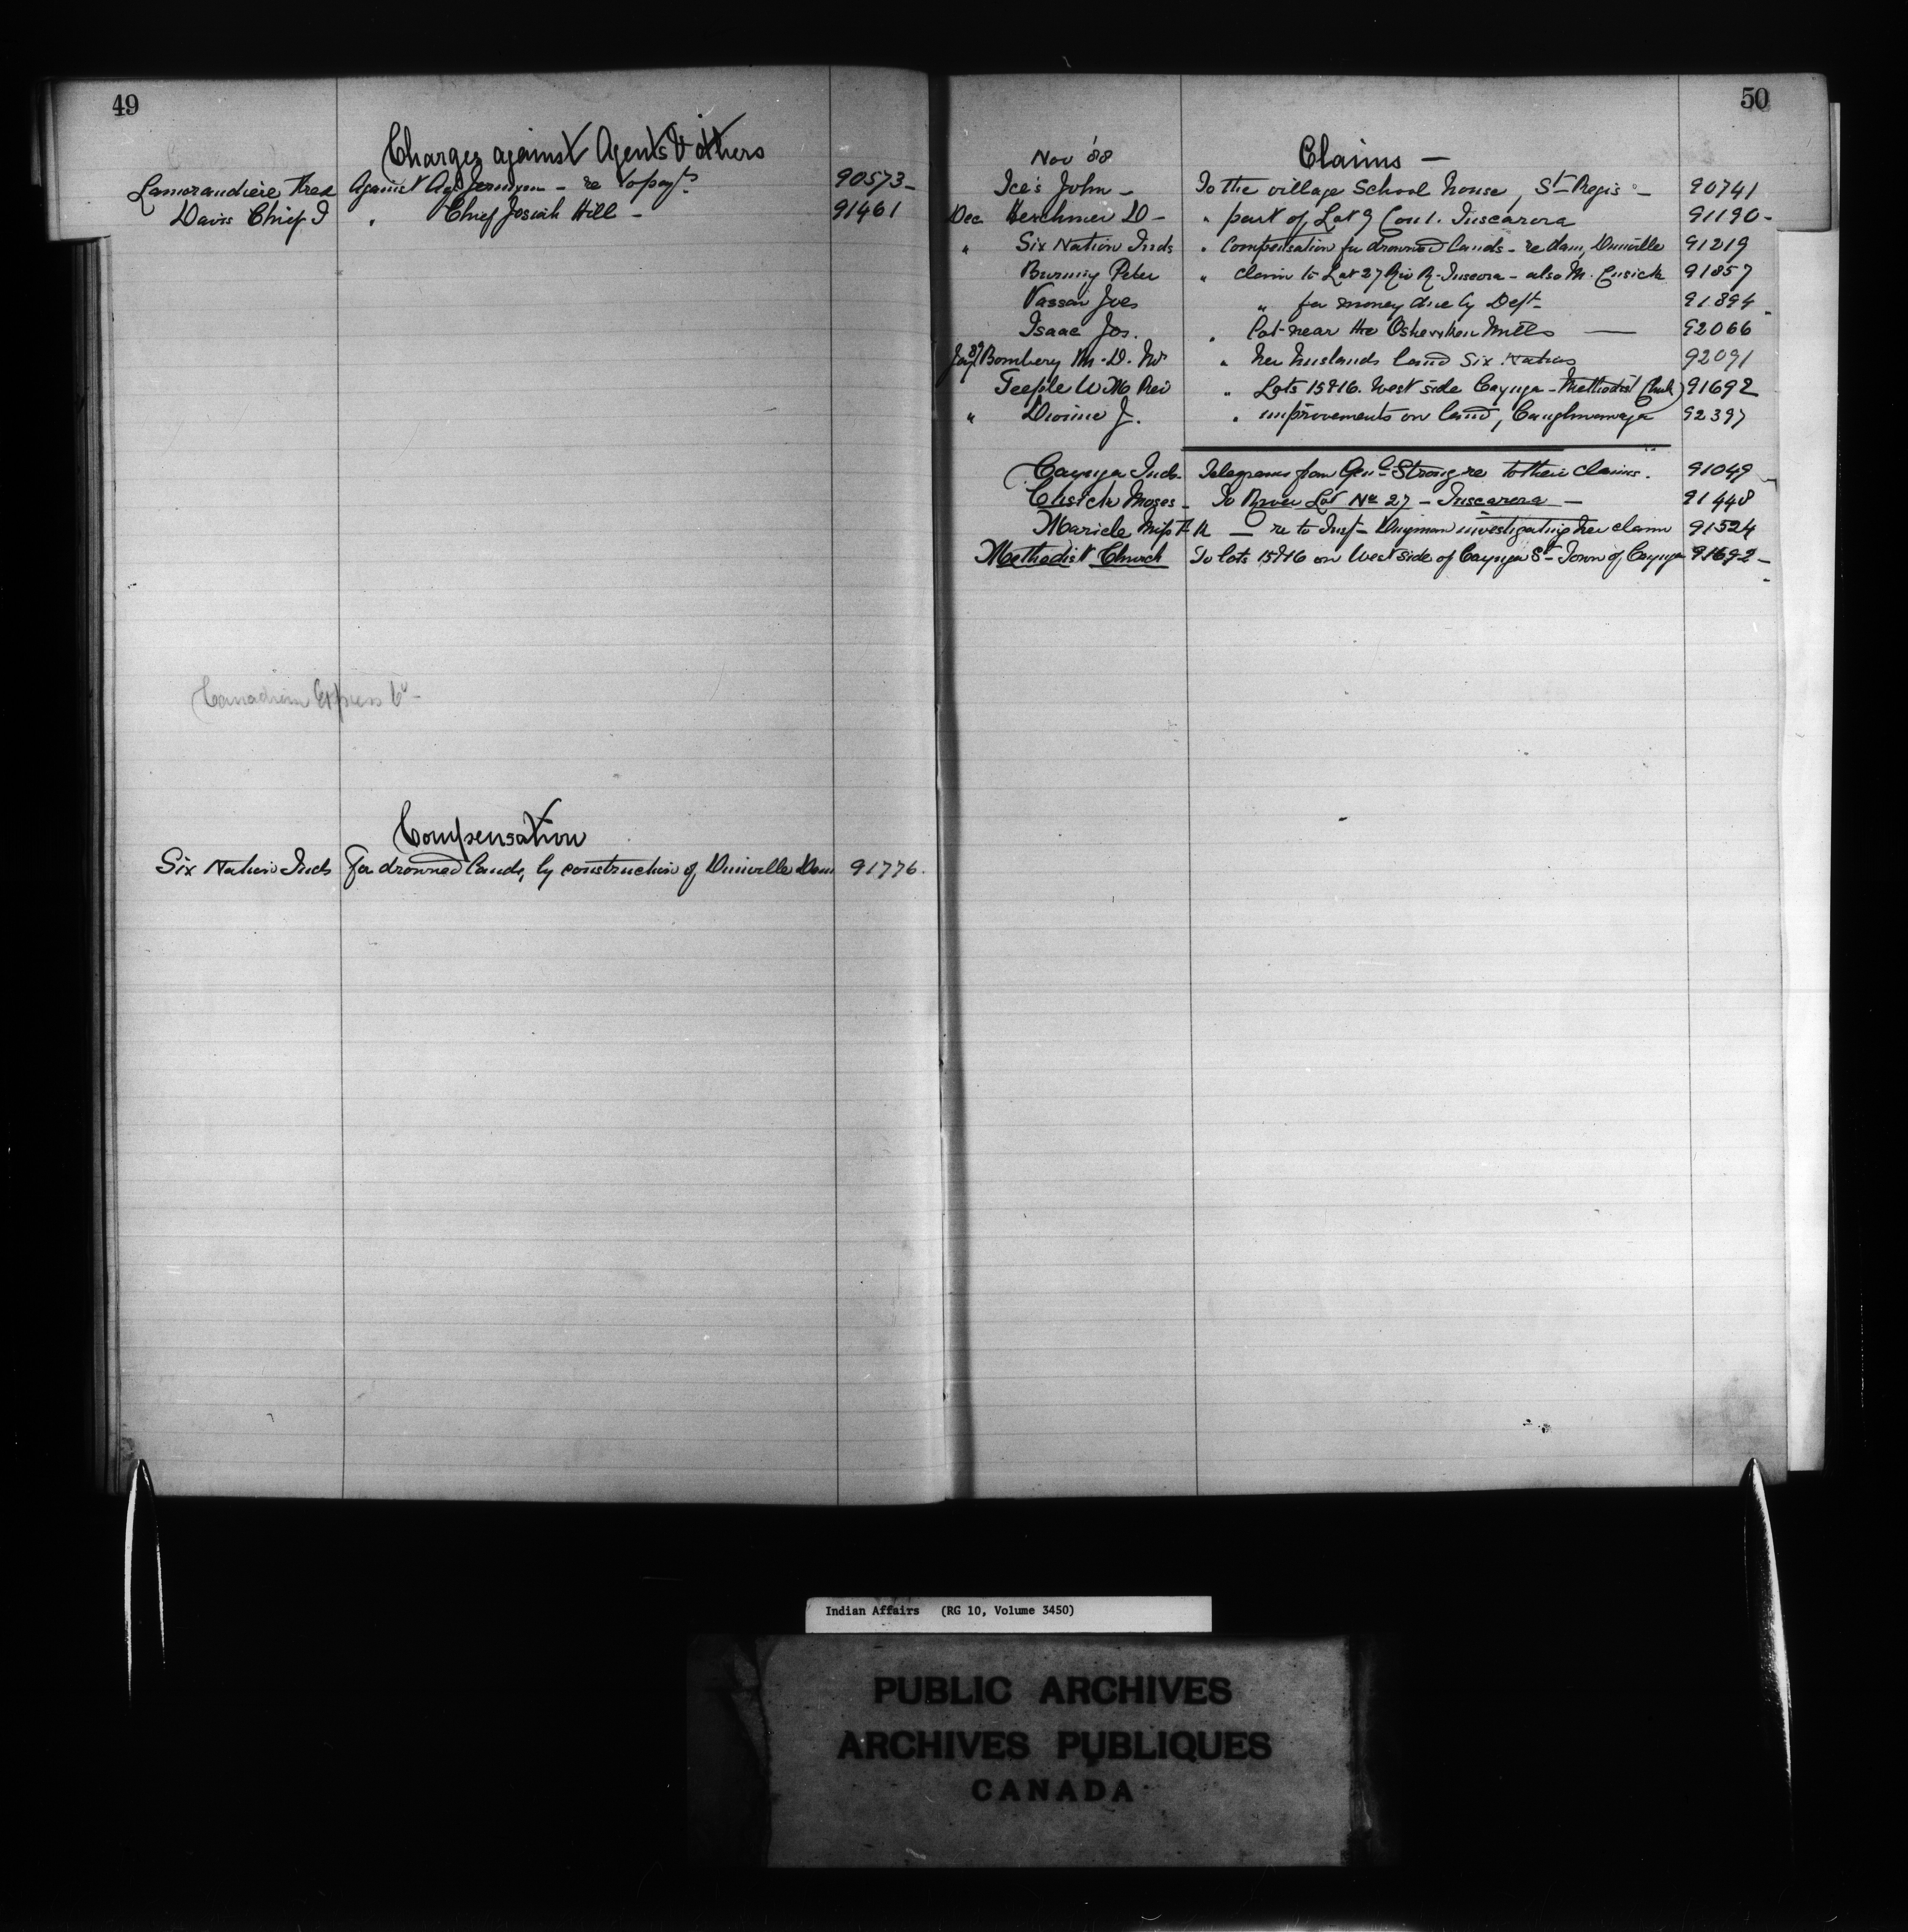 49
Charges against Agents & others
Lamorandiere Fred Against Agt Jermyn - re to payt 90573-
Davis Chief I " Chief Josiah Hill - 91461
Canadian Express Co -
Compensation
Six Nation Inds For drowned lands, by construction of Dunville Dam 91776.
50
Nov '88 Claims -
Ice's John - To the village School house, St Regis - 90741
Dec Herchmer D - " part of Lot 9 Con 1. Tuscarora 91190-
" Six Nation Inds " Compensation for drowned lands - re dam, Dunville 91219
Burning Peter " claim to Lot 27 Riv R. Tuscora - also M. Cusick 91857
Vassar Jos " for money due by Dept 91894
Isaac Jos. " lot near the Oshweken Mills - 92066
Jay 89 Bombery M. D. " her husbands land Six Nations 92091
Teeple W M Rev " Lots 15 & 16. West side Cayuga - Methodist Church) 91692
" Diome J. " improvements on land, Caughnawaga 92397
Cayuga Inds. Telegrams from Genl Strong re to their Claims. 91049
Cusick Moses - To River Lot No 27 - Tuscarora - 91448
Maricle - re to Inst Dingman investigating her claim 91524
Methodist Church To lots 15 & 16 on West side of Cayuga St - Town of Cayuga 91692-
Indian Affairs (RG 10, Volume 3450)
PUBLIC ARCHIVES
ARCHIVES PUBLIQUES
CANADA